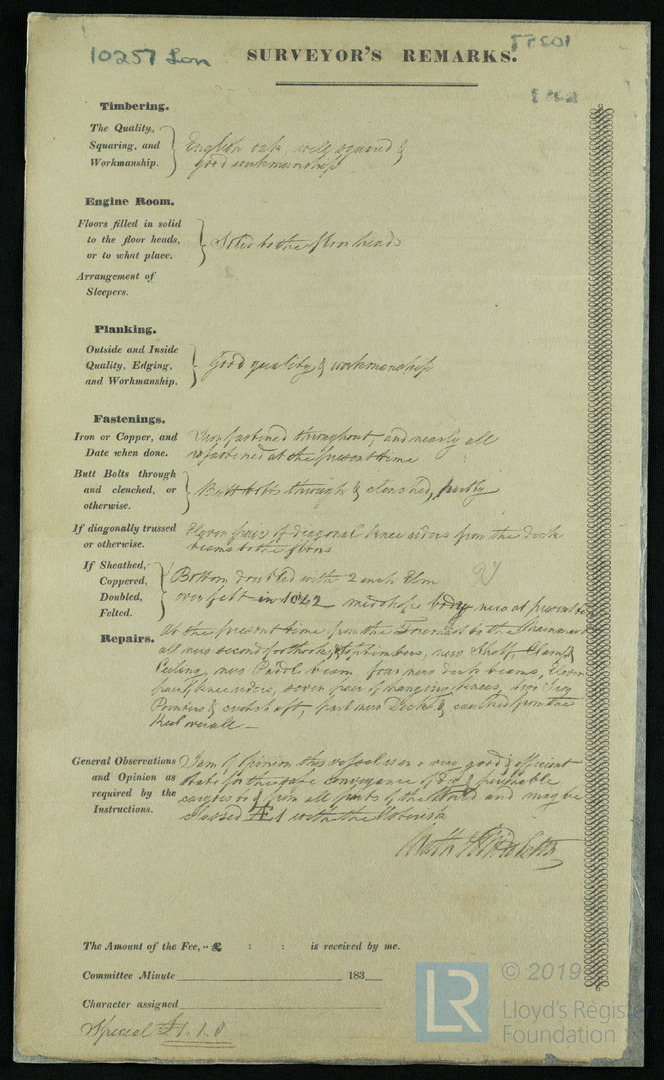 10257 Lon
SURVEYOR'S REMARKS.
Timbering.
The Quality,
Squaring, and
Workmanship.
English oak well squared &
good workmanship
Engine Room.
Floors filled in solid
to the floor heads,
or to what place.
Solid to the floor heads
Arrangement of
Sleepers.
Planking.
Outside and Inside
Quality, Edging,
and Workmanship.
Good quality & workmanship
Fastenings.
Iron or Copper, and
Date when done.
Iron fastened throughout, and nearly all
refastened at the present time
Butt Bolts through
and clenched, or
otherwise.
Butt bolts through & clenched, partly
If diagonally trussed
or otherwise.
pair of diagonal knee riders from the deck
beams to the floors
If Sheathed,
Coppered,
Doubled,
Felted.
Bottom doubled with 2 inch Elm
over felt in 1842 midships body new at present
Repairs.
At the present time from the Foremast to the Mainmast
all new second foothooks, & toptimbers, new Shelf, Clamps
Ceiling, new Paddle beam four new deck beams, Eleven
pair knee riders, seven pair of hanging knees, Iron
Pointers & crutch aft, part new Deck & caulked from the
Keel overall
General Observations
and Opinion as
required by the
Instructions.
I am of opinion this vessel is in a very good & efficient
state for the safe conveyance of dry & perishable
cargoes to & from all parts of the World and may be
classed Æ 1 with the
The Amount of the Fee, .. £ : : is received by me.
Committee Minute 183
Character assigned
Special £1.1.0
LR
© 2019
Lloyd's Register
Foundation